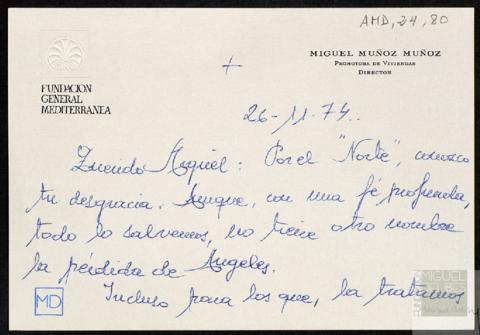 AMD, 24, 80
MIGUEL MUÑOZ MUÑOZ
PROMOTORA DE VIVIENDAS
DIRECTOR
FUNDACION
GENERAL
MEDITERRANEA
+
26-11-74.
Querido Miguel: Por el "Norte", conozco
tu desgracia. Aunque, con una fé profunda,
todo lo salvemos, no tiene otro nombre
la pérdida de Angeles.
Incluso para los que, la tratamos
MD
MIGUEL